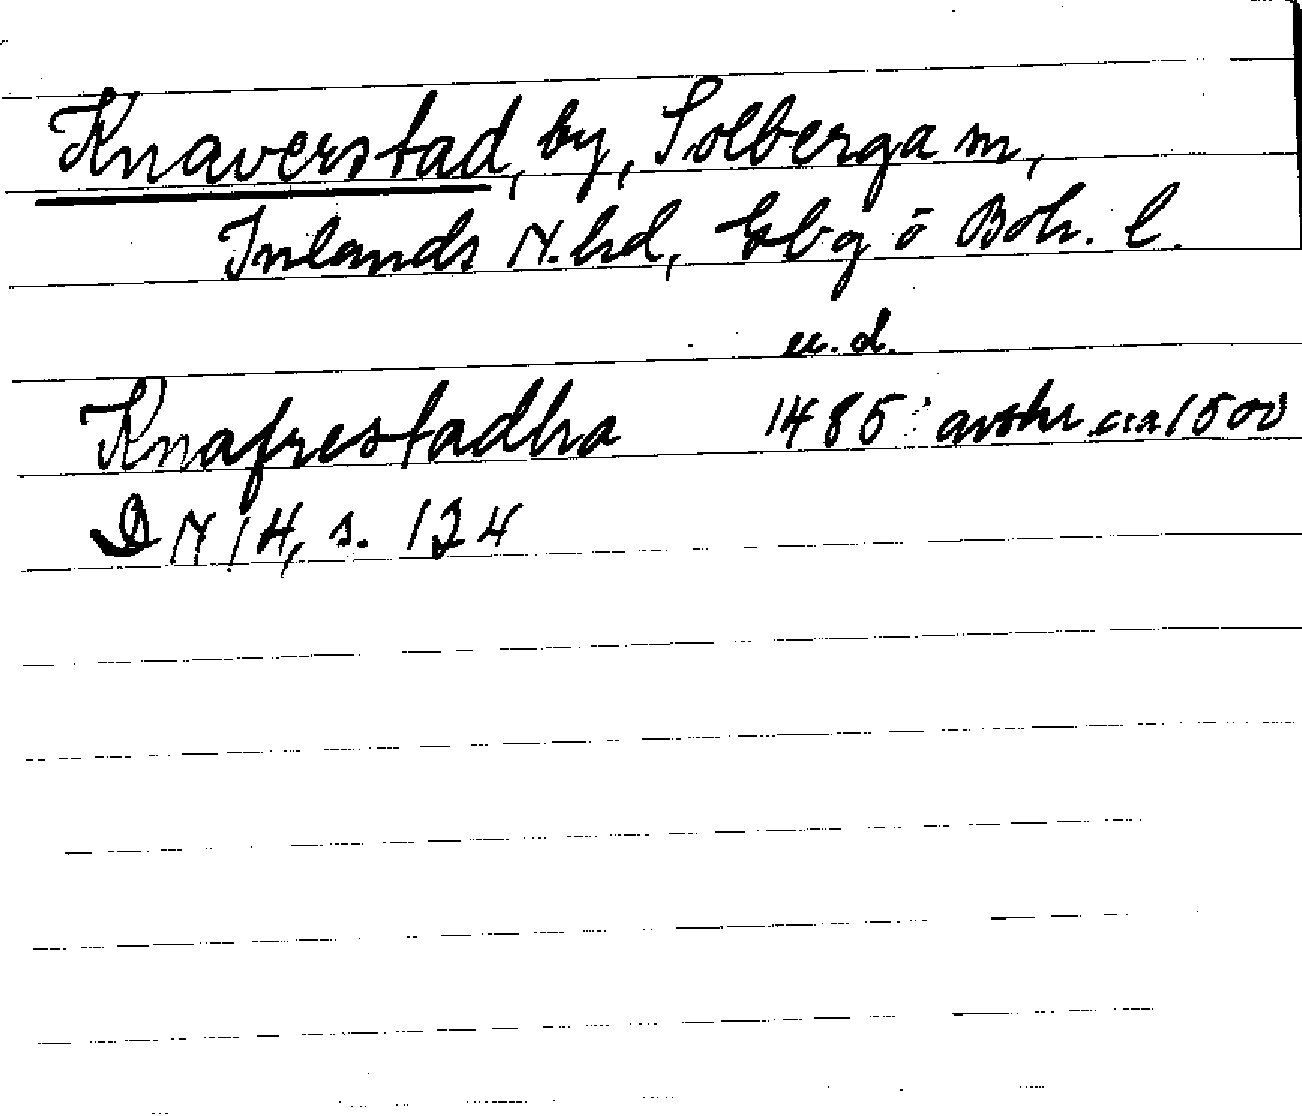 Knaverstad, by, Solberga sn,
Inlands N. hd, Gbg o Boh. l.
u. d.
Knafrestadha 1485 avskr. c:a 1500
DN 14, s. 124